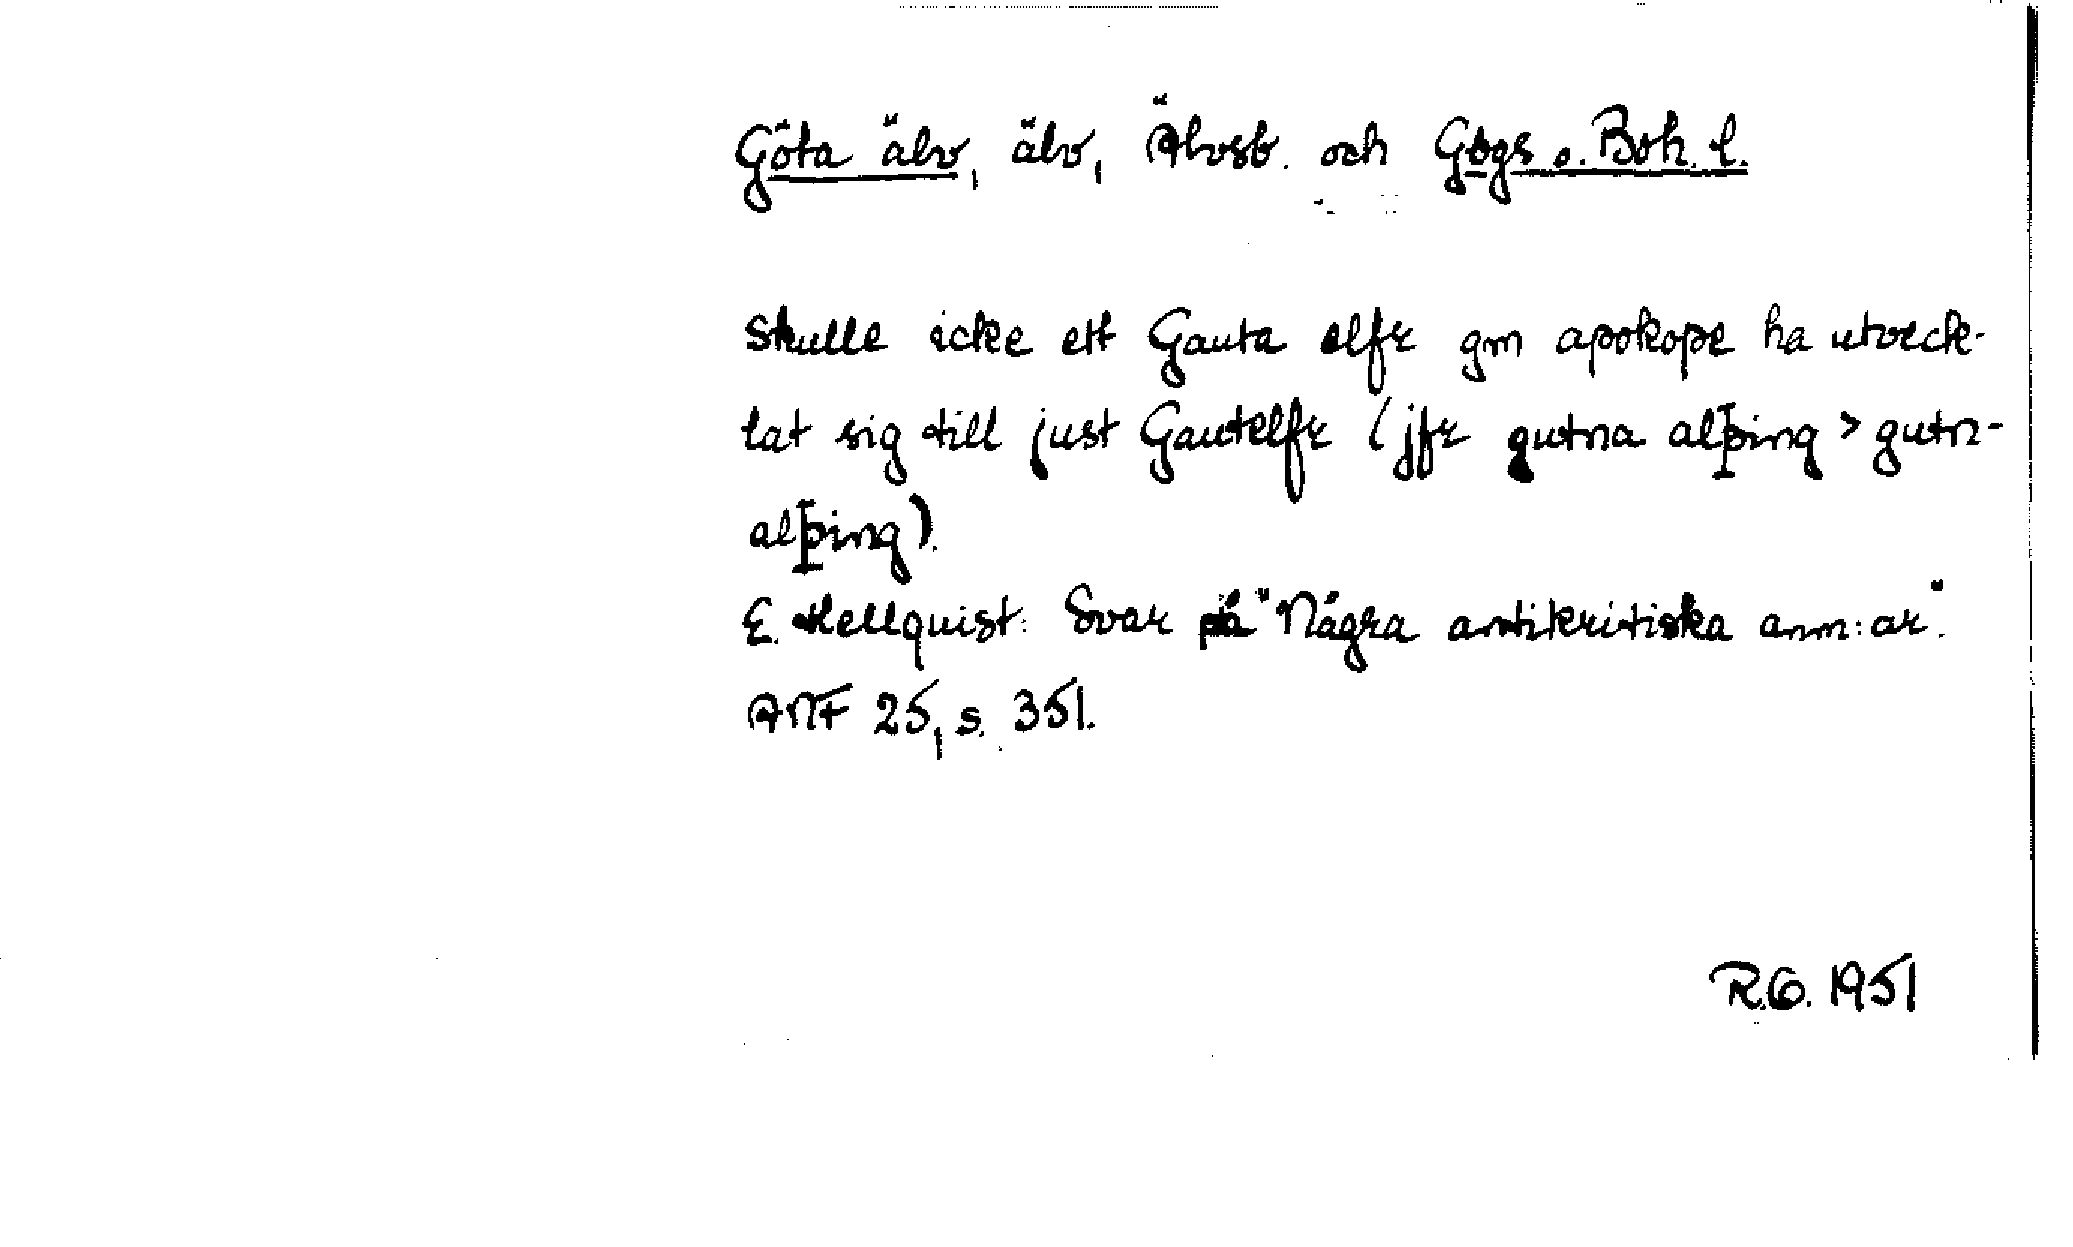 Göta älv, älv, Älvsb. och Gbgs o. Boh. l.
Skulle icke ett Gauta elfr gm apokope ha utveck-
lat sig till just Gautelfr (jfr gutna alþing > gutn-
alþing).
E. Hellquist: Svar på "Några antikritiska anm:ar".
ANF 25, s. 351.
R.G. 1951